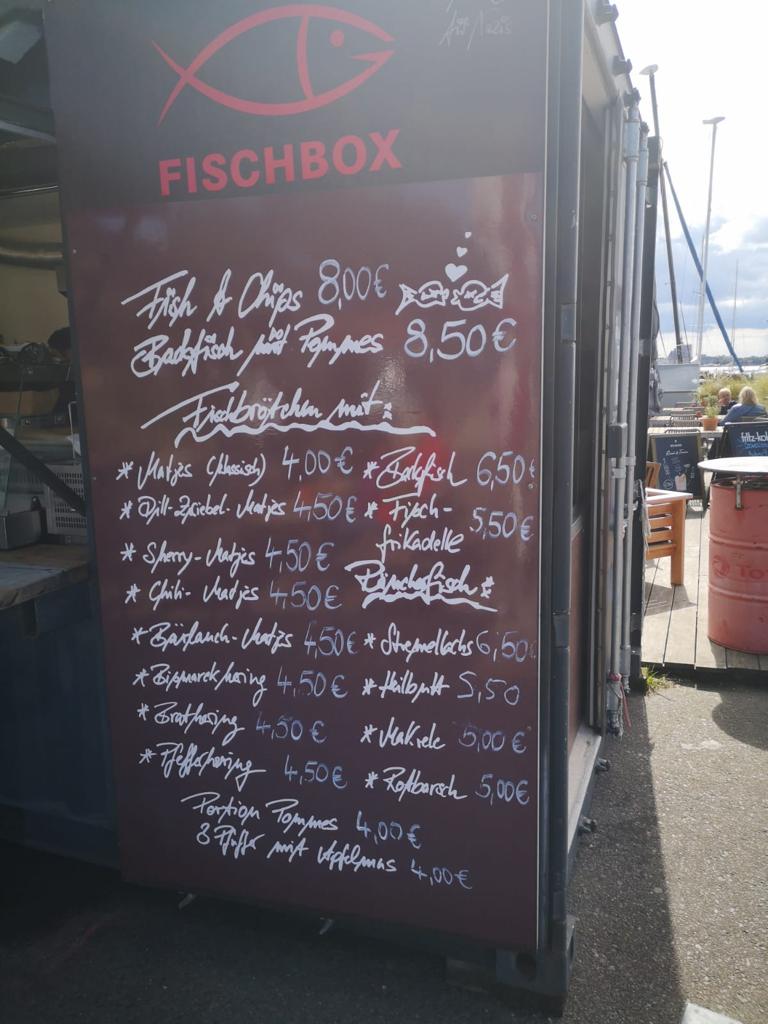 FISCHBOX
Fish & Chips 8,00€
Backfisch mit Pommes 8,50€
Fischbrötchen mit:
* Matjes (klassisch) 4,00€
* Dill-Zwiebel-Matjes 4,50€
* Sherry-Matjes 4,50€
* Chili-Matjes 4,50€
* Bärlauch-Matjes 4,50€
* Bismarckhering 4,50€
* Brathering 4,50€
* Pfefferhering 4,50€
* Backfisch 6,50€
* Fisch-
frikadelle 5,50€
Räucherfisch:
* Stremellachs 6,50
* Heilbutt 5,50
* Makrele 5,00€
* Rotbarsch 5,00€
Portion Pommes 4,00€
3 Puffer mit Apfelmus 4,00€
fritz-kol